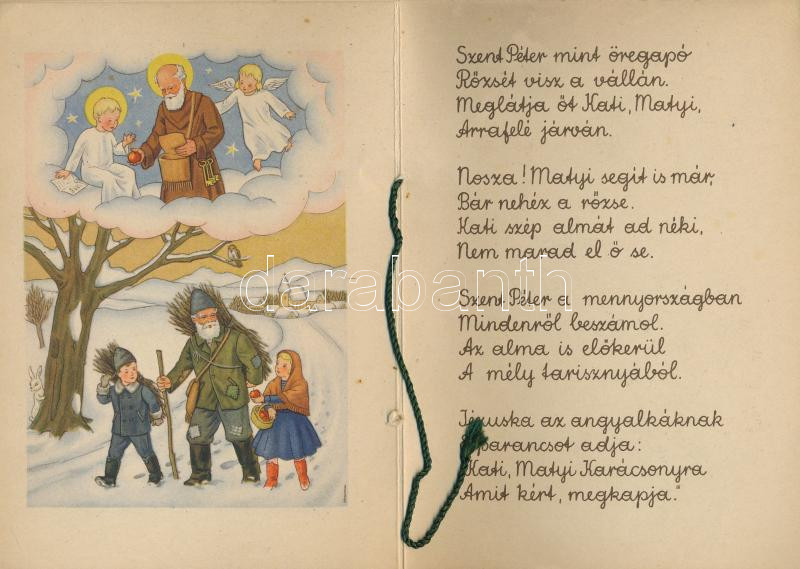 Szent Péter mint öregapó
Rőzsét visz a vállán.
Meglátja őt Kati, Matyi,
Arrafelé járván.

Nosza! Matyi segít is már,
Bár nehéz a rőzse.
Kati szép almát ad néki,
Nem marad el ő se.

darabanth
Szent Péter a mennyországban
Mindenről beszámol.
Az alma is előkerül
A mély tarisznyából.

Jézuska az angyalkáknak
parancsot adja:
Kati, Matyi Karácsonyra
Amit kért, megkapja."